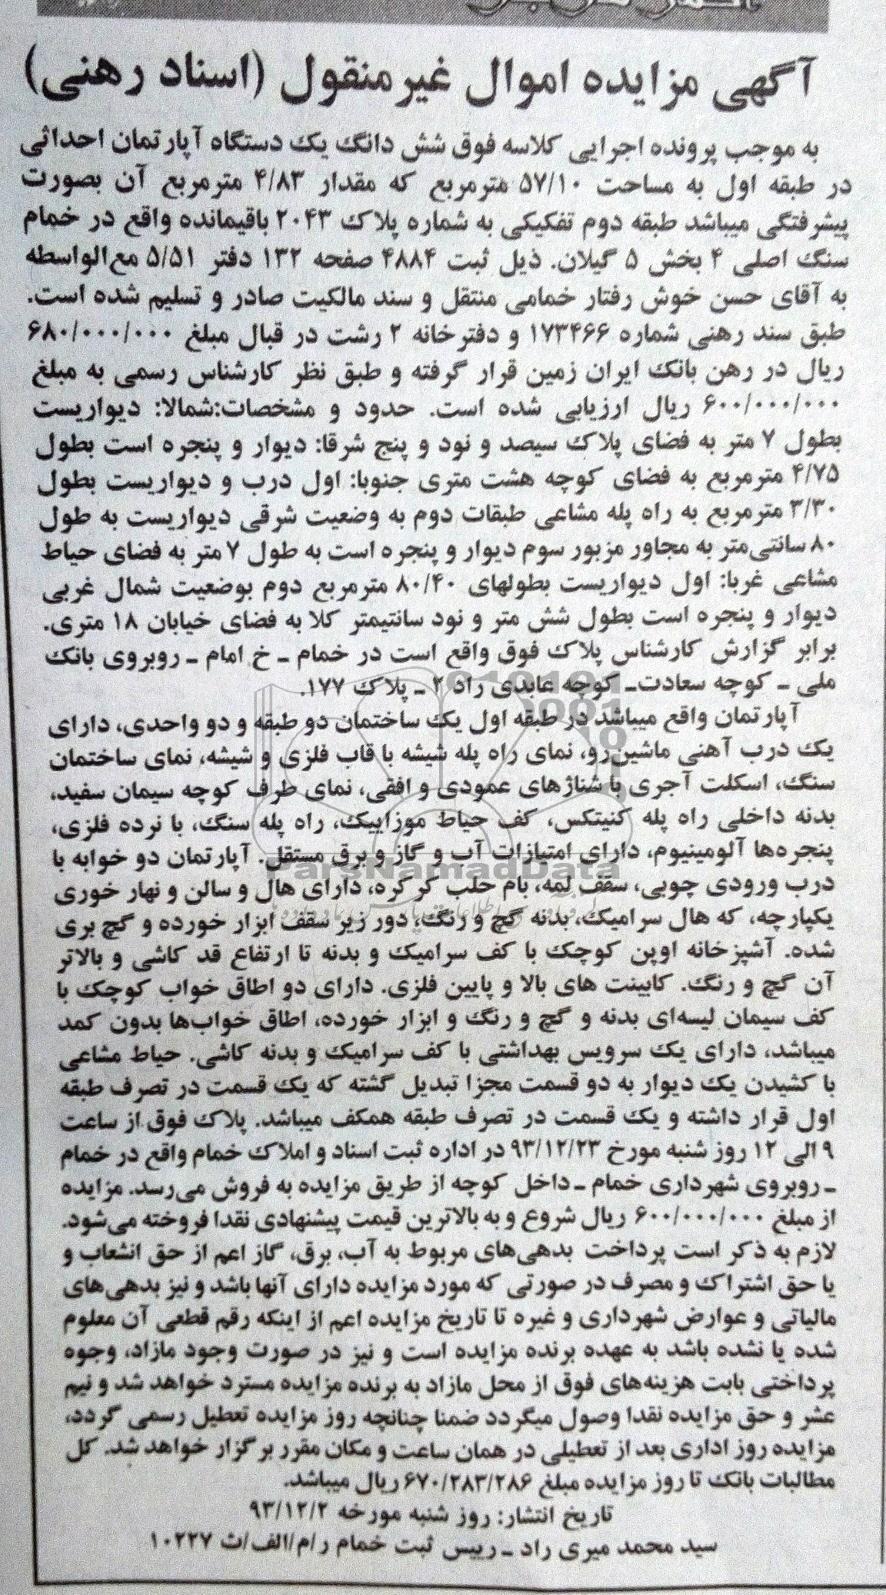 آگهی مزایده اموال غیرمنقول (اسناد رهنی)
به موجب پرونده اجرایی کلاسه فوق شش دانگ یک دستگاه آپارتمان احداثی
در طبقه اول به مساحت ۵۷/۱۰ مترمربع که مقدار ۴/۸۳ مترمربع آن بصورت
پیشرفتگی میباشد طبقه دوم تفکیکی به شماره پلاک ۲۰۴۳ باقیمانده واقع در خمام
سنگ اصلی ۴ بخش ۵ گیلان. ذیل ثبت ۴۸۸۴ صفحه ۱۳۲ دفتر ۵/۵۱ مع‌الواسطه
به آقای حسن خوش رفتار خمامی منتقل و سند مالکیت صادر و تسلیم شده است.
طبق سند رهنی شماره ۱۷۳۴۶۶ و دفترخانه ۲ رشت در قبال مبلغ ۶۸۰/۰۰۰/۰۰۰
ریال در رهن بانک ایران زمین قرار گرفته و طبق نظر کارشناس رسمی به مبلغ
۶۰۰/۰۰۰/۰۰۰ ریال ارزیابی شده است. حدود و مشخصات:شمالا: دیواریست
بطول ۷ متر به فضای پلاک سیصد و نود و پنج شرقا: دیوار و پنجره است بطول
۴/۷۵ مترمربع به فضای کوچه هشت متری جنوبا: اول درب و دیواریست بطول
۳/۳۰ مترمربع به راه پله مشاعی طبقات دوم به وضعیت شرقی دیواریست به طول
۸۰ سانتی‌متر به مجاور مزبور سوم دیوار و پنجره است به طول ۷ متر به فضای حیاط
مشاعی غربا: اول دیواریست بطولهای ۸۰/۴۰ مترمربع دوم بوضعیت شمال غربی
دیوار و پنجره است بطول شش متر و نود سانتیمتر کلا به فضای خیابان ۱۸ متری.
برابر گزارش کارشناس پلاک فوق واقع است در خمام ـ خ امام ـ روبروی بانک
ملی ـ کوچه سعادت ـ کوچه عابدی راد ۲ ـ پلاک ۱۷۷.
آپارتمان واقع میباشد در طبقه اول یک ساختمان دو طبقه و دو واحدی، دارای
یک درب آهنی ماشین‌رو، نمای راه پله شیشه با قاب فلزی و شیشه، نمای ساختمان
سنگ، اسکلت آجری با شناژهای عمودی و افقی، نمای طرف کوچه سیمان سفید،
بدنه داخلی راه پله کنیتکس، کف حیاط موزاییک، راه پله سنگ، با نرده فلزی،
پنجره‌ها آلومینیوم، دارای امتیازات آب و گاز و برق مستقل. آپارتمان دو خوابه با
ParsNamadData
درب ورودی چوبی، سقف لمه، بام حلب کرکره، دارای هال و سالن و نهار خوری
یکپارچه، که هال سرامیک، بدنه گچ و رنگ، دور زیر سقف ابزار خورده و گچ بری
شده. آشپزخانه اوپن کوچک با کف سرامیک و بدنه تا ارتفاع قد کاشی و بالاتر
آن گچ و رنگ. کابینت های بالا و پایین فلزی. دارای دو اطاق خواب کوچک با
کف سیمان لیسه‌ای بدنه و گچ و رنگ و ابزار خورده، اطاق خواب‌ها بدون کمد
میباشد، دارای یک سرویس بهداشتی با کف سرامیک و بدنه کاشی. حیاط مشاعی
با کشیدن یک دیوار به دو قسمت مجزا تبدیل گشته که یک قسمت در تصرف طبقه
اول قرار داشته و یک قسمت در تصرف طبقه همکف میباشد. پلاک فوق از ساعت
۹ الی ۱۲ روز شنبه مورخ ۹۳/۱۲/۲۳ در اداره ثبت اسناد و املاک خمام واقع در خمام
ـ روبروی شهرداری خمام ـ داخل کوچه از طریق مزایده به فروش می‌رسد. مزایده
از مبلغ ۶۰۰/۰۰۰/۰۰۰ ریال شروع و به بالاترین قیمت پیشنهادی نقدا فروخته می‌شود.
لازم به ذکر است پرداخت بدهی‌های مربوط به آب، برق، گاز اعم از حق انشعاب و
یا حق اشتراک و مصرف در صورتی که مورد مزایده دارای آنها باشد و نیز بدهی‌های
مالیاتی و عوارض شهرداری و غیره تا تاریخ مزایده اعم از اینکه رقم قطعی آن معلوم
شده یا نشده باشد به عهده برنده مزایده است و نیز در صورت وجود مازاد، وجوه
پرداختی بابت هزینه‌های فوق از محل مازاد به برنده مزایده مسترد خواهد شد و نیم
عشر و حق مزایده نقدا وصول میگردد ضمنا چنانچه روز مزایده تعطیل رسمی گردد،
مزایده روز اداری بعد از تعطیلی در همان ساعت و مکان مقرر برگزار خواهد شد. کل
مطالبات بانک تا روز مزایده مبلغ ۶۷۰/۲۸۳/۲۸۶ ریال میباشد.
تاریخ انتشار: روز شنبه مورخه ۹۳/۱۲/۲
سید محمد میری راد ـ رییس ثبت خمام ر/م/الف/ث ۱۰۲۲۷